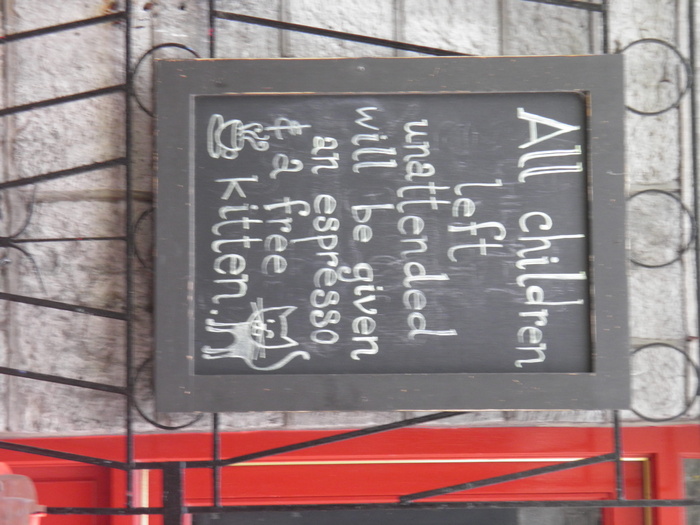 All children
left
unattended
will be given
an espresso
& a free
kitten.